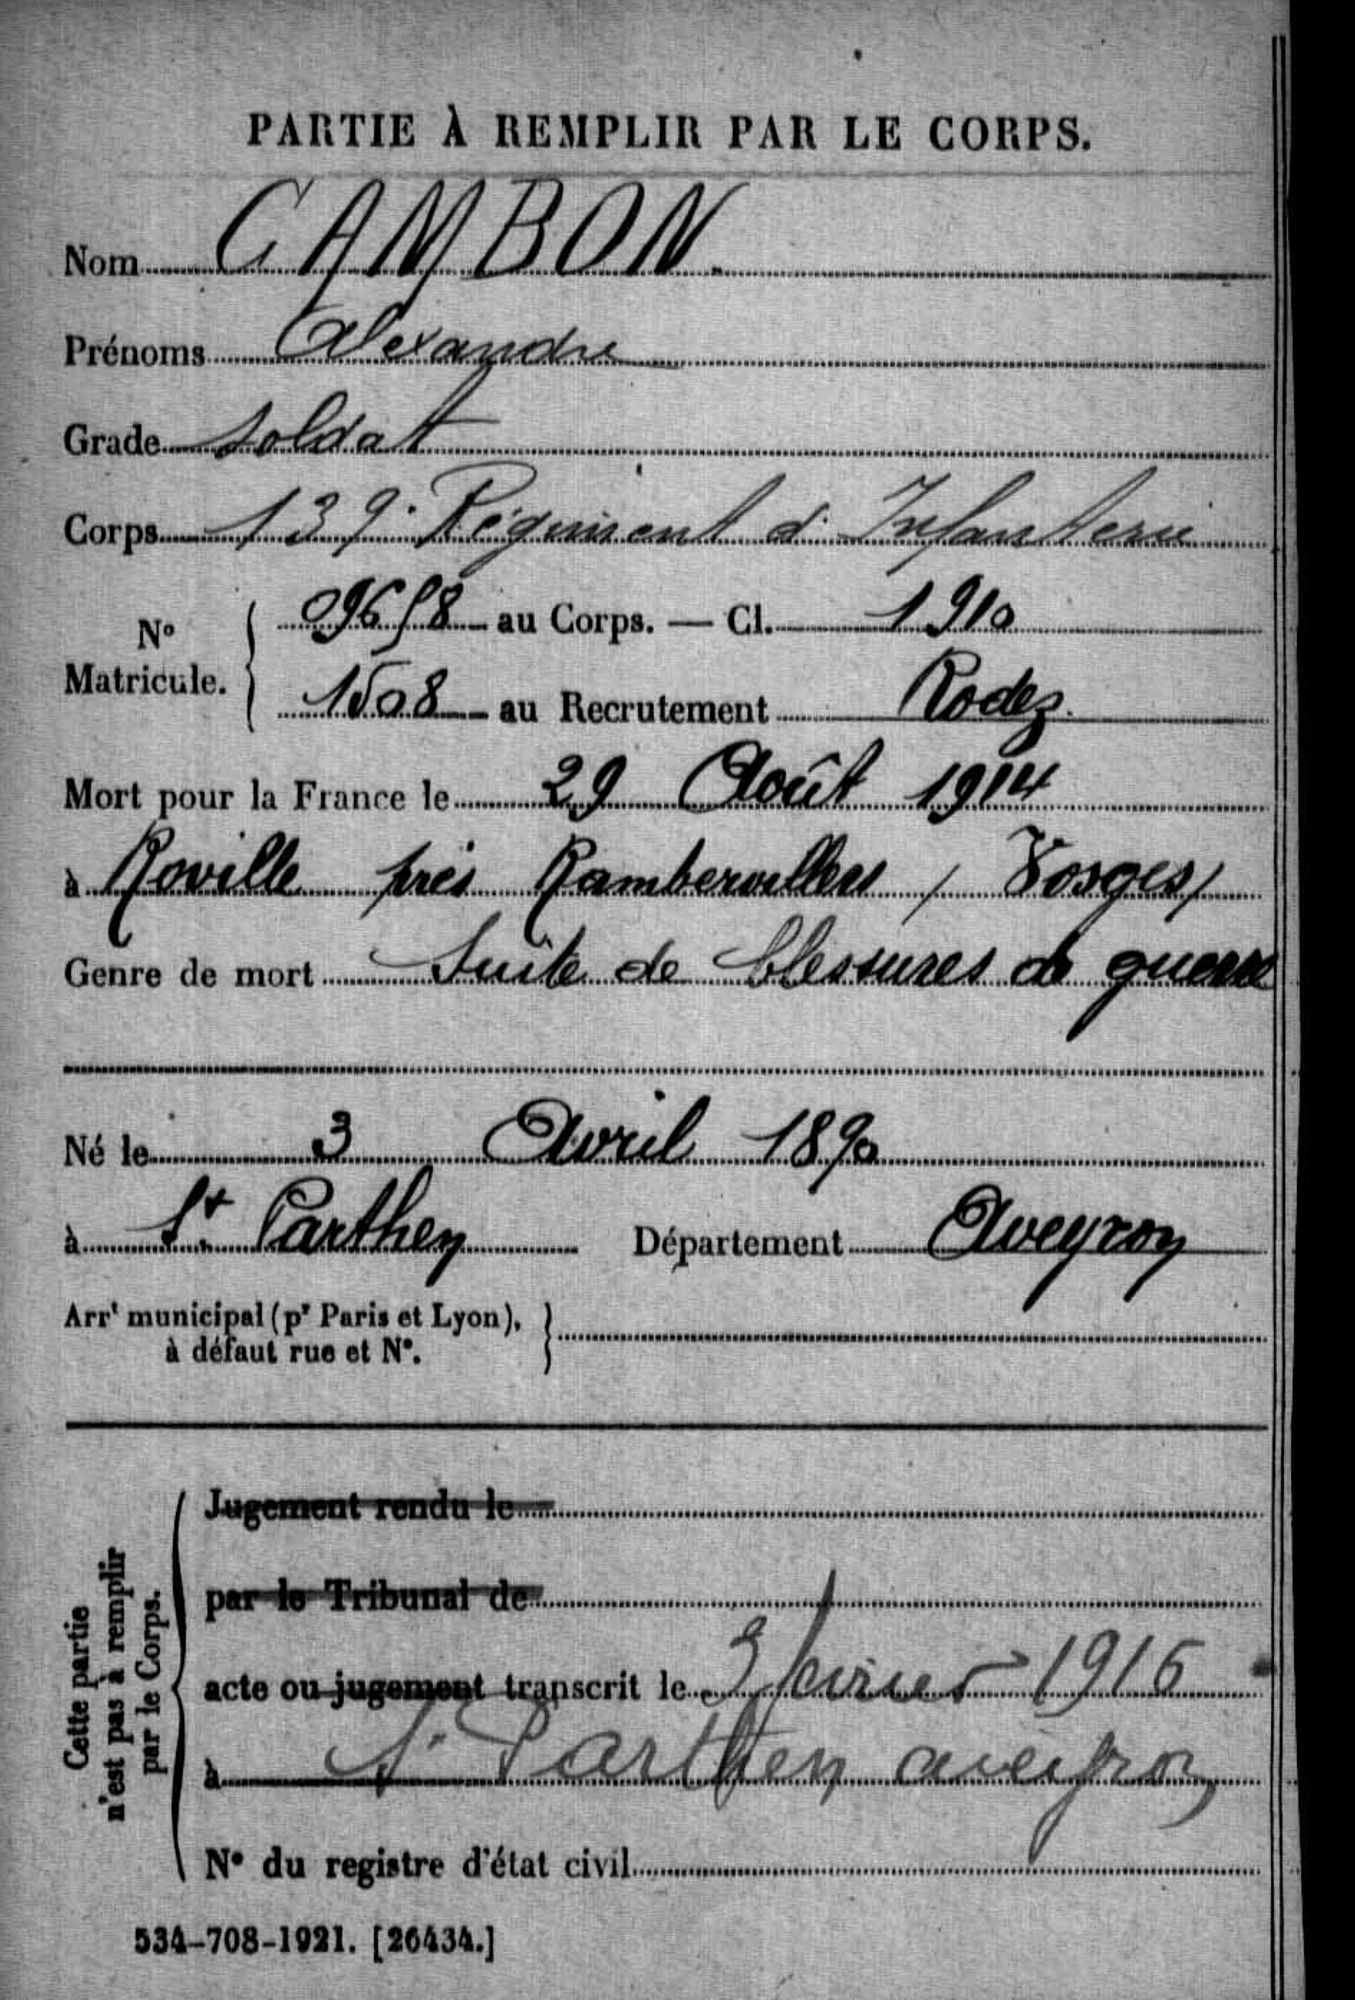 PARTIE À REMPLIR PAR LE CORPS.
Nom CAMBON.
Prénoms Alexandre
Grade soldat
Corps 139e Régiment d'Infanterie
No Matricule. { 09658 au Corps. — Cl. 1910
1508 au Recrutement Rodez.
Mort pour la France le 29 Août 1914
à Roville près Rambervillers / Vosges /
Genre de mort Suite de blessures de guerre
Né le 3 Avril 1890
à St. Parthem Département Aveyron
Arrt municipal (pr Paris et Lyon),
à défaut rue et No.
Cette partie
n'est pas à remplir
par le Corps.
Jugement rendu le
par le Tribunal de
acte ou jugement transcrit le 3 février 1916
à St Parthem aveyron
No du registre d'état civil
534-708-1921. [26434.]